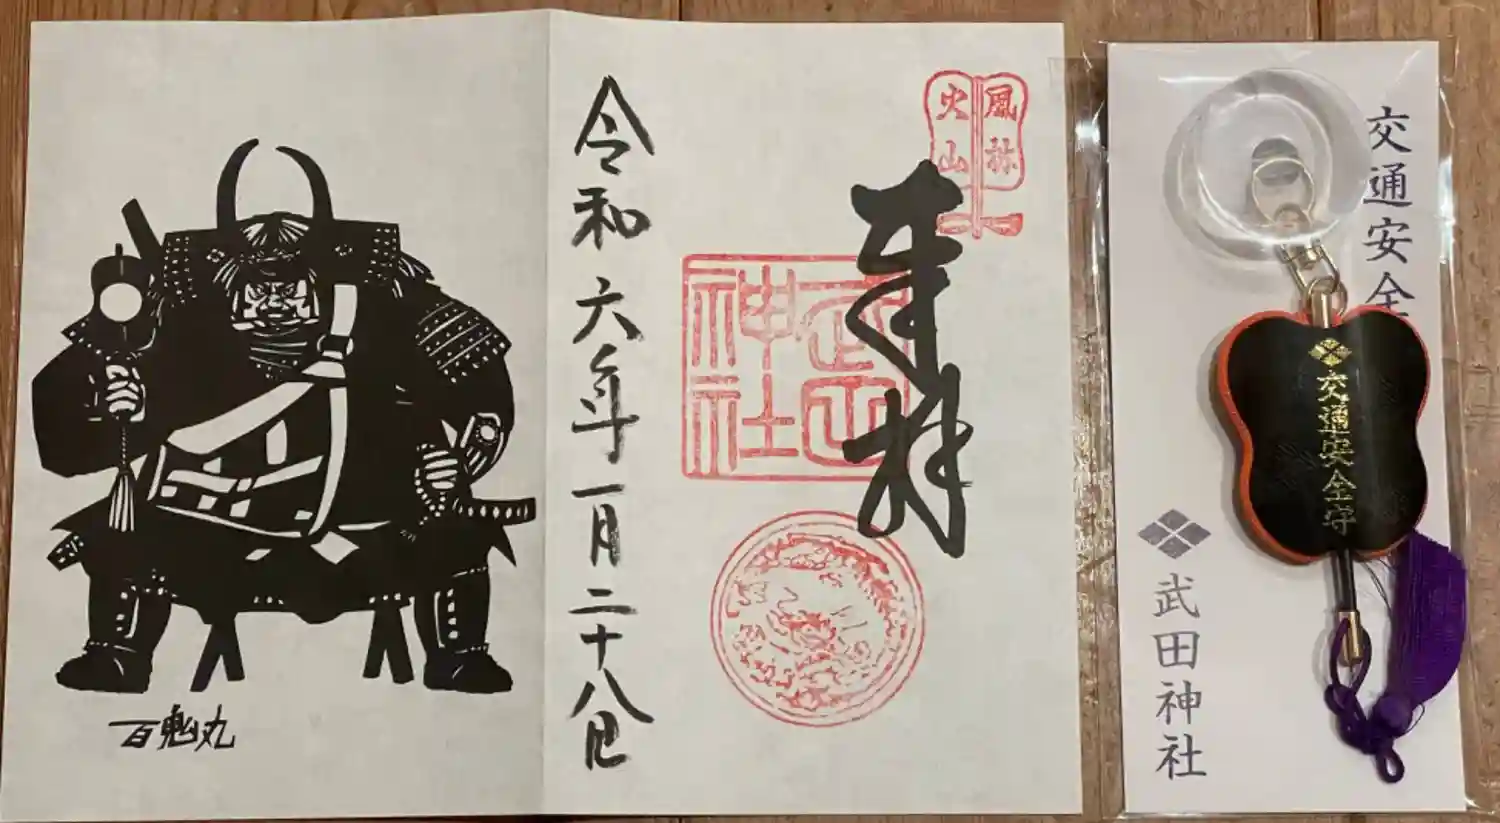 風林
火山
奉拝
武田
神社
令和六年一月二十八日
百鬼丸
交通安全
交通安全守
武田神社